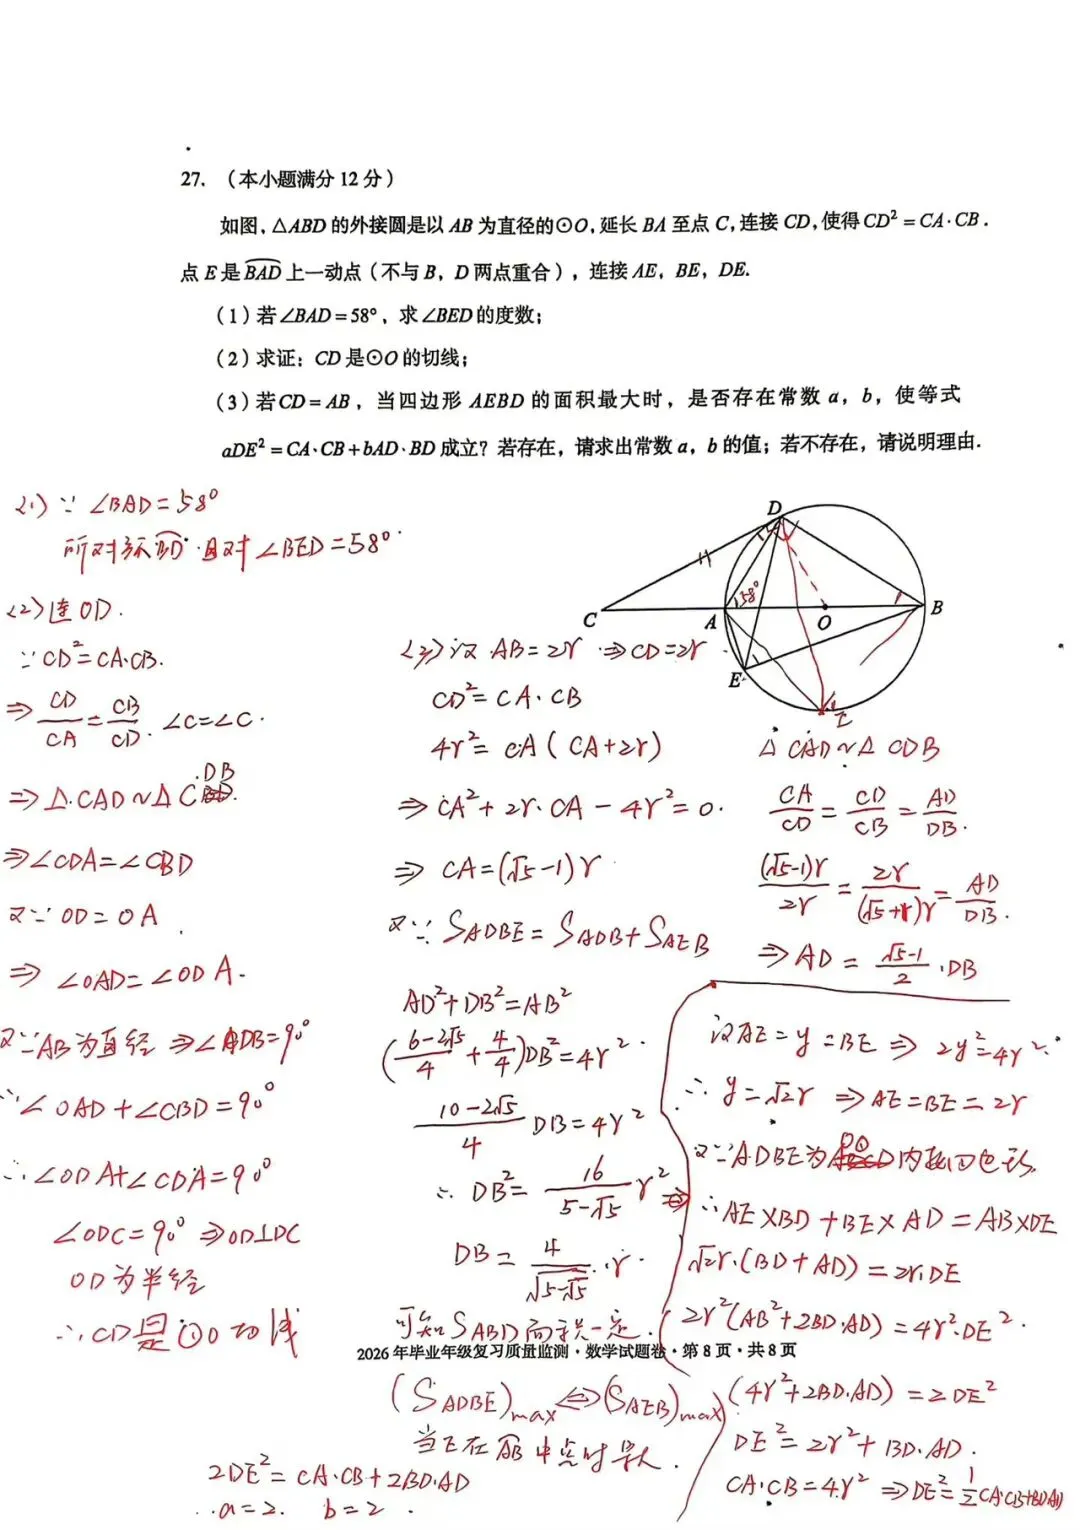 27. （本小题满分 12 分）
如图，△ABD 的外接圆是以 AB 为直径的⊙O，延长 BA 至点 C，连接 CD，使得 CD²=CA·CB.
点 E 是 BAD 上一动点（不与 B，D 两点重合），连接 AE，BE，DE.
（1）若∠BAD=58°，求∠BED 的度数；
（2）求证：CD 是⊙O 的切线；
（3）若 CD=AB，当四边形 AEBD 的面积最大时，是否存在常数 a，b，使等式
aDE²=CA·CB+bAD·BD 成立？若存在，请求出常数 a，b 的值；若不存在，请说明理由.
D
C
A
58°
O
B
E
E
(1) ∵ ∠BAD=58°
且对∠BED=58°
(2) 连 OD.
∵ CD²=CA·CB.
⇒ CD/CA = CB/CD. ∠C=∠C.
⇒ △CAD∽△CDB
⇒ ∠CDA=∠CBD
又∵ OD=OA
⇒ ∠OAD=∠ODA.
又∵ AB为直径 ⇒ ∠ADB=90°
∴ ∠OAD+∠CBD=90°
∴ ∠ODA+∠CDA=90°
∠ODC=90° ⇒ OD⊥DC
OD为半径
∴ CD是⊙O切线
(3) 设 AB=2r ⇒ CD=2r
CD²=CA·CB
4r²=CA(CA+2r)
⇒ CA²+2r·CA-4r²=0.
⇒ CA=(√5-1)r
又∵ S_ADBE=S_ADB+S_AEB
AD²+DB²=AB²
((6-2√5)/4+4/4)DB²=4r².
(10-2√5)/4 DB=4r²
∴ DB²=16/(5-√5) r²
DB=4/√(5-√5)·r.
可知S_ABD面积一定.
(S_ADBE)max ⇔ (S_AEB)max
当E在AB中点时最大.
△CAD∽△CDB
CA/CD = CD/CB = AD/DB.
(√5-1)r/2r = 2r/(√5+1)r = AD/DB.
⇒ AD = (√5-1)/2·DB
设AE=y=BE ⇒ 2y²=4r².
∴ y=√2r ⇒ AE=BE=2r
又∵ADBE为⊙O内接四边形.
∴ AE×BD+BE×AD=AB×DE
√2r·(BD+AD)=2r·DE
2r²(AB²+2BD·AD)=4r²·DE².
(4r²+2BD·AD)=2DE²
DE²=2r²+BD·AD.
CA·CB=4r² ⇒ DE²=1/2CA·CB+BD·AD
2DE²=CA·CB+2BD·AD
∴ a=2. b=2.
2026 年毕业年级复习质量监测·数学试题卷·第 8 页·共 8 页